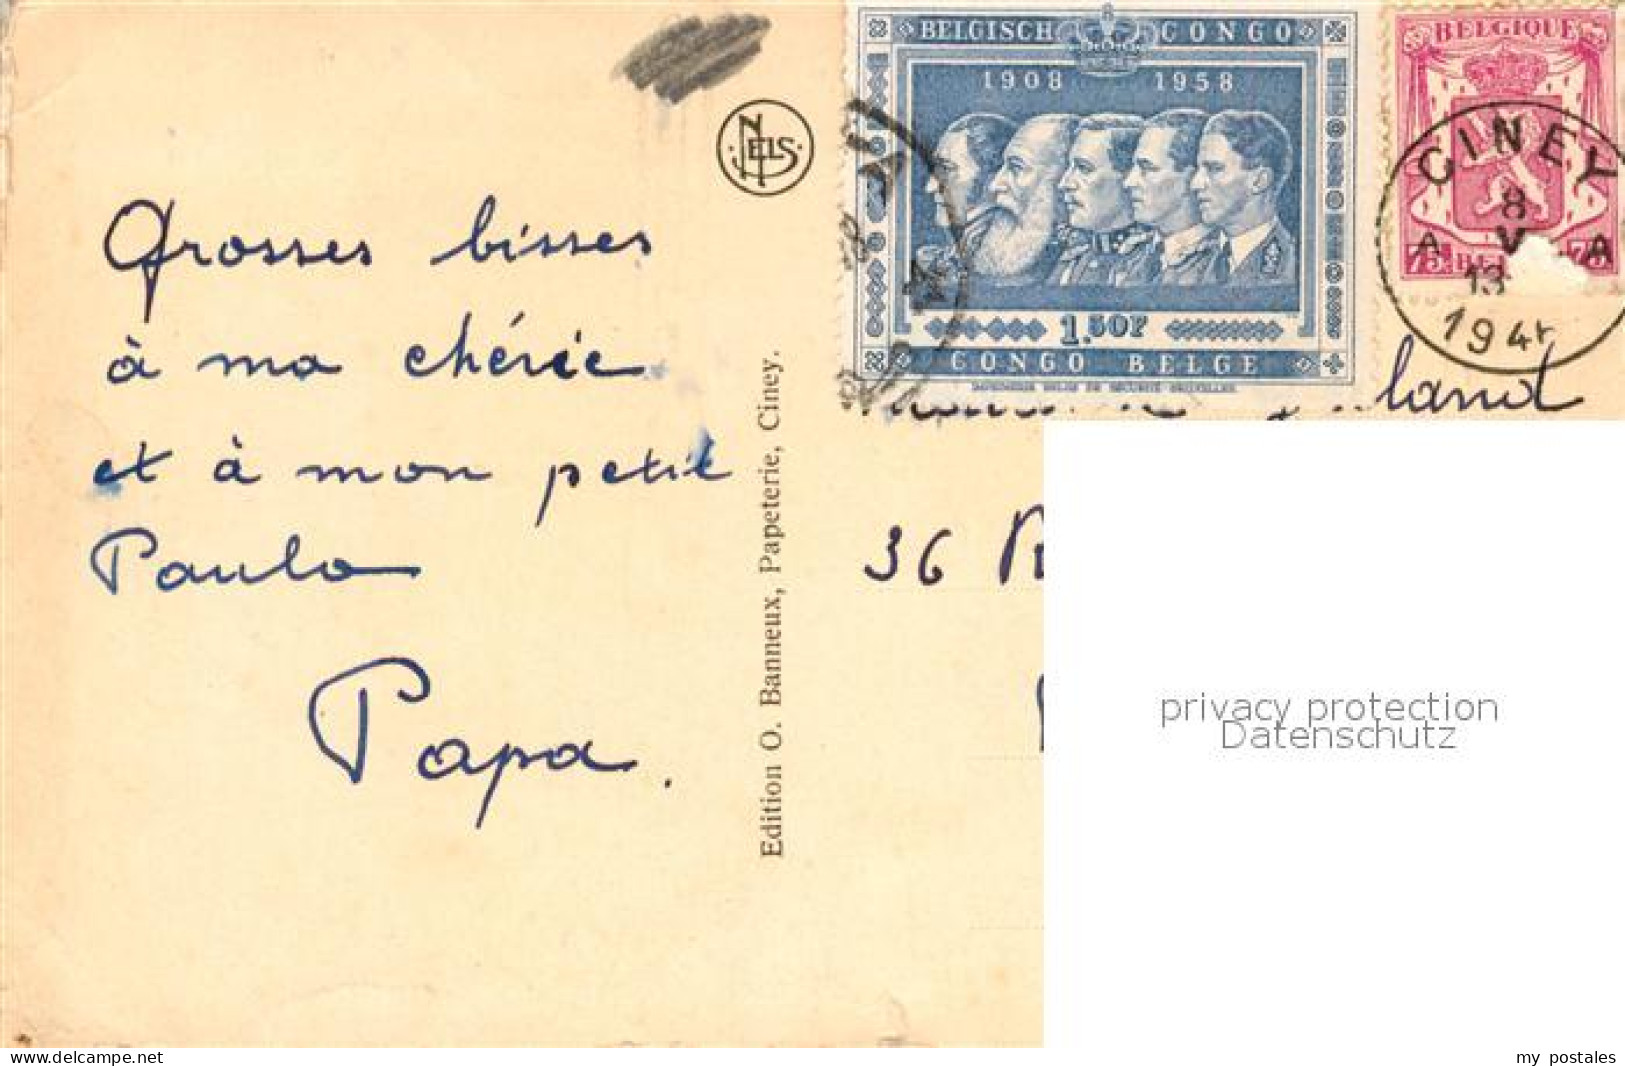 Grosses bisses
à ma chérie
et à mon petit
Paulo
Papa.
NELS
Edition O. Banneux, Papeterie, Ciney.
BELGISCH CONGO
1908 1958
1.50F
CONGO BELGE
IMPRIMERIE BELGE DE SECURITÉ BRUXELLES
BELGIQUE
75c
CINEY
A 8 A
V
13
194
36
privacy protection
Datenschutz
my postales
www.delcampe.net